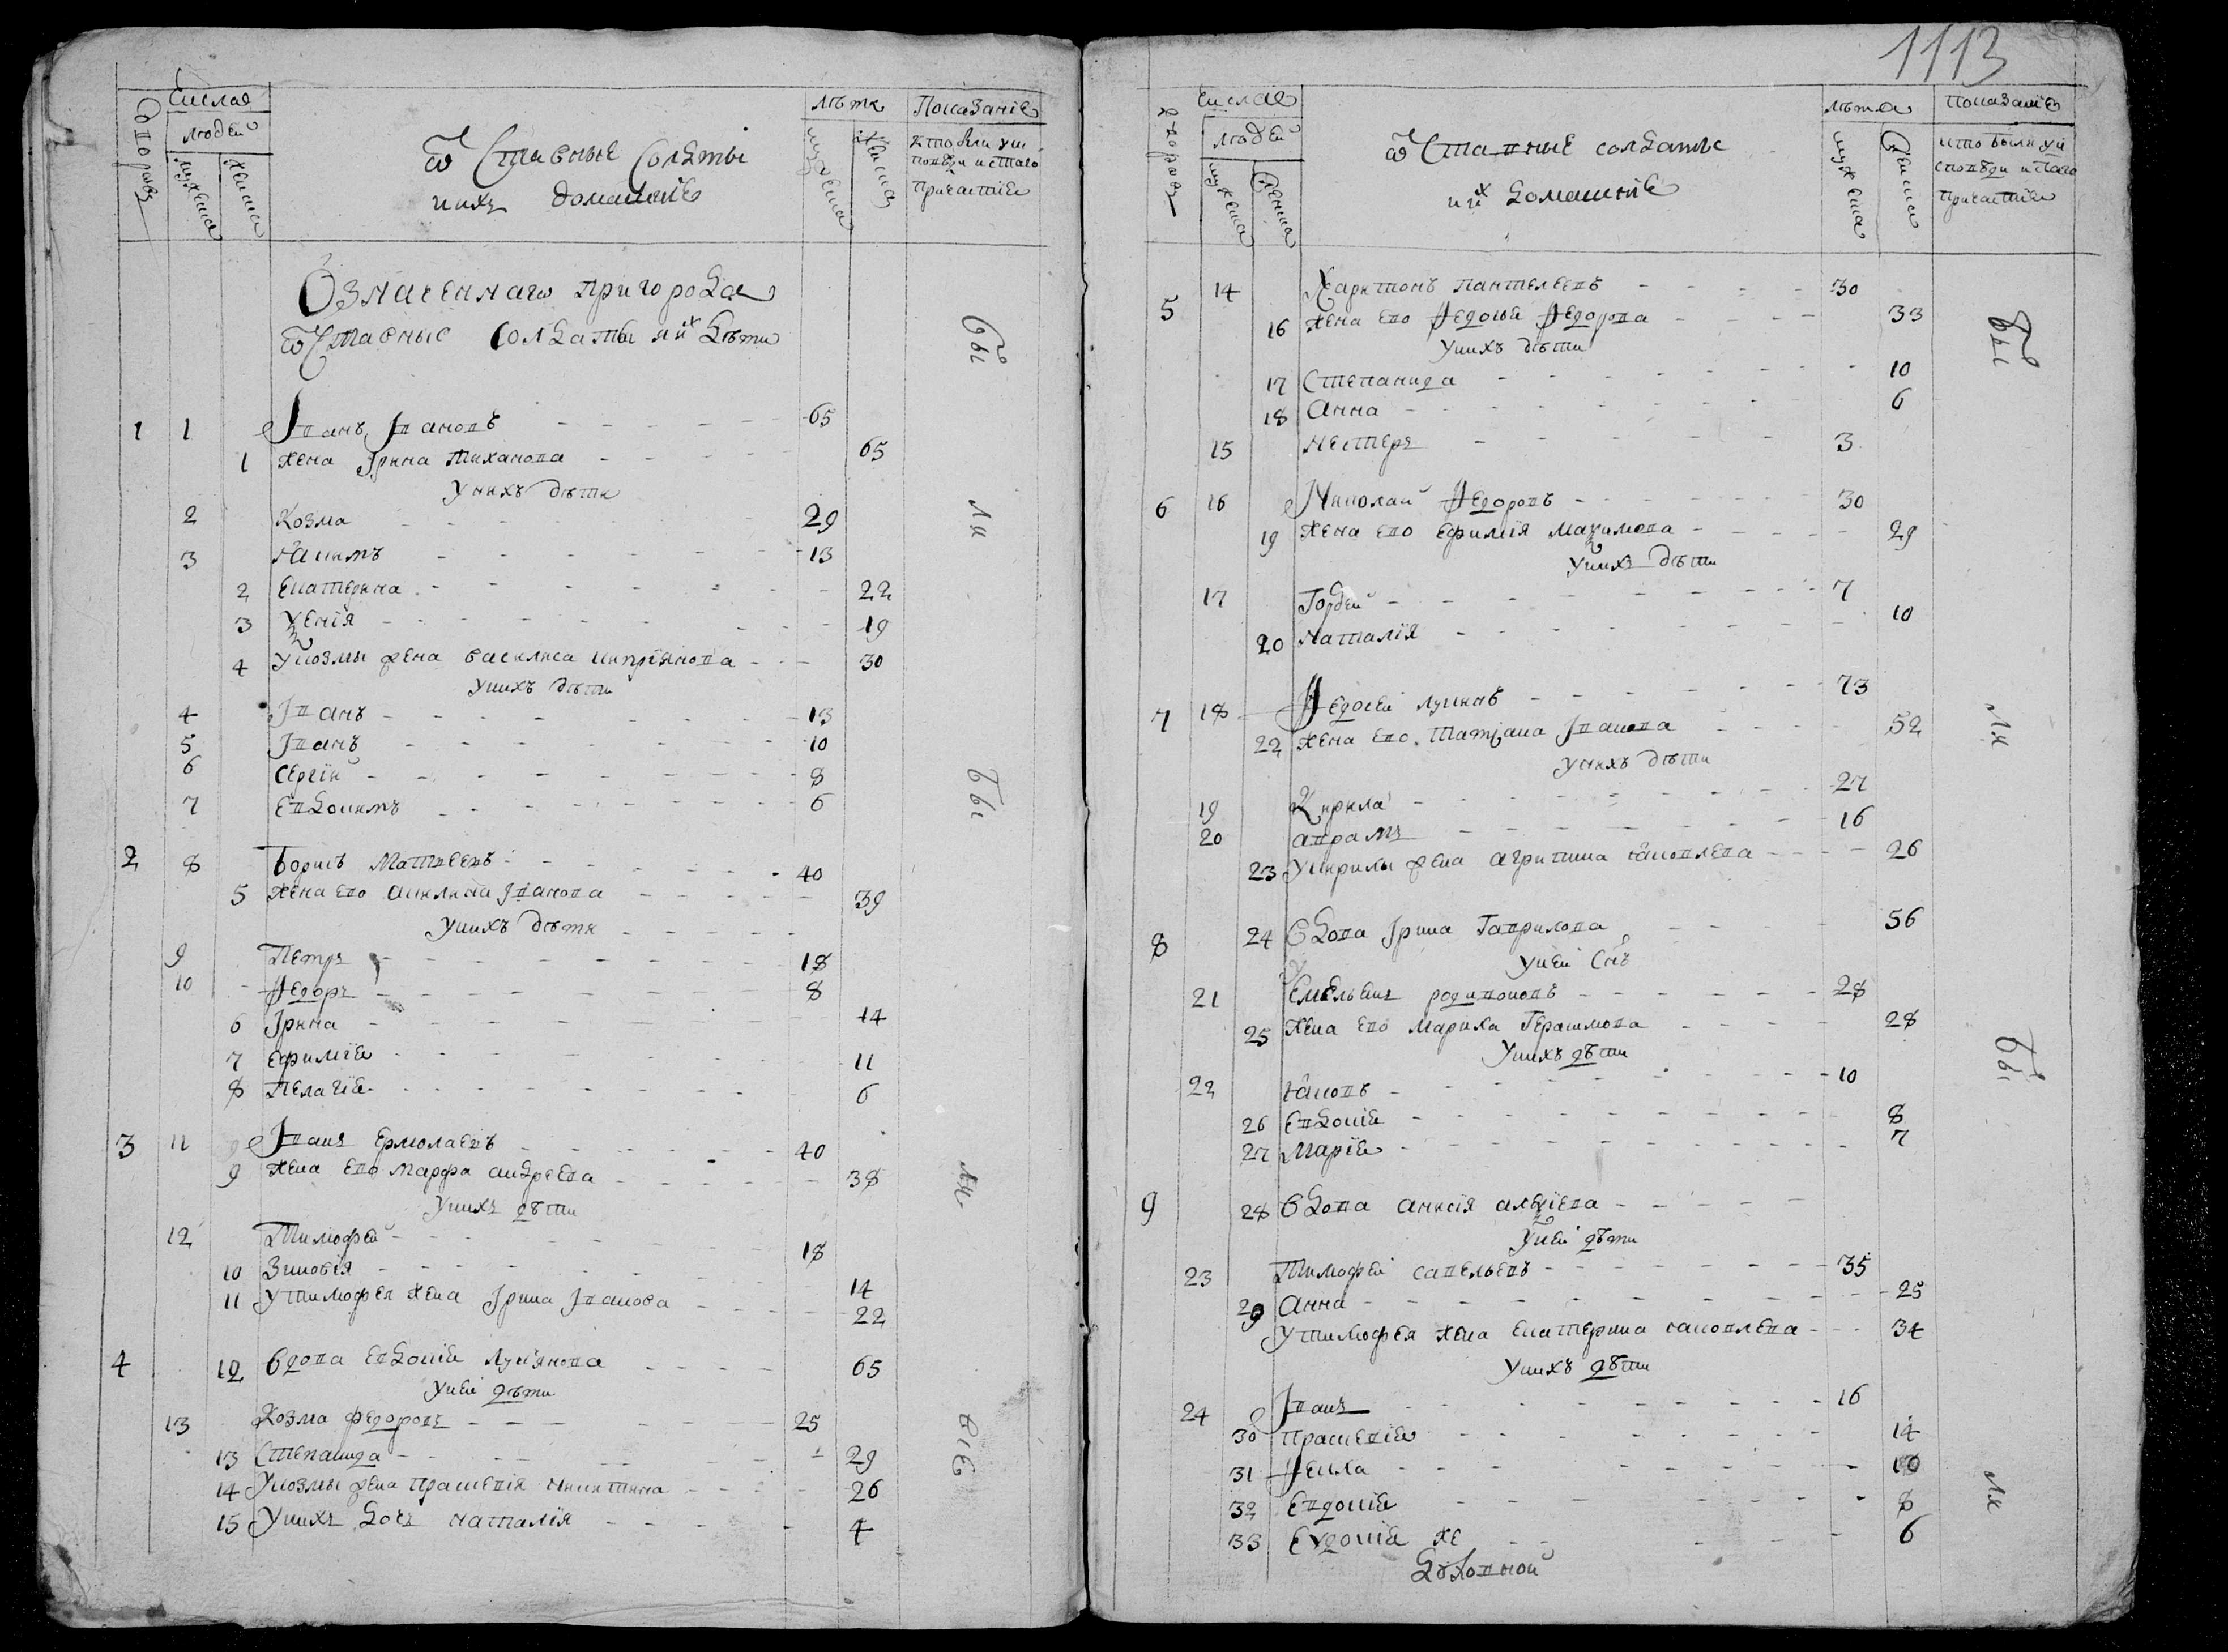 Числа
людей
Дворовъ
мужеска
женска
ѿставные солдаты
и ихъ домашніе
лѣта
мужеска
женска
Показаніе
кто были у ис
поведи и с҃таго
причастія
Означеннаго пригорода
ѿставные солдаты и их дѣти
1 1 Іванъ Івановъ 65
1 жена Ірина Тиханова 65
у нихъ дѣти
2 Козма 29
3 Якимъ 13
2 Екатерина 22
3 Ѯенія 19
4 У козмы жена василиса киприянова 30
у нихъ дѣти
4 Іванъ 13
5 Іванъ 10
6 Сергій 8
7 Евдокимъ 6
2 8 Борисъ Матвеевъ 40
5 жена ево акилина Іванова 39
у нихъ дѣти
9 Петръ 18
10 Ѳедоръ 8
6 Ірина 14
7 Ефимія 11
8 Пелагія 6
3 11 Іванъ Ермолаевъ 40
9 жена ево Марфа андреева 38
у нихъ дѣти
12 Тимофей 18
10 Зиновія 14
11 У тимофея жена Ірина Іванова 22
4 12 вдова Евдокія Лукіянова 65
у ней дѣти
13 Козма федоровъ 25
13 Степанида 29
14 У козмы жена Прасковія никитина 26
15 У нихъ дочь наталія 4
бы
ли
бы
ли
всѣ
1113
Числа
людей
Дворовъ
мужеска
женска
ѿставные солдаты
и их домашніе
лѣта
мужеска
женска
показаніе
кто были у и
споведи и с҃таго
причастія
5 14 Харитонъ пантелеевъ 30
16 жена ево Ѳедосья Ѳедорова 33
у нихъ дѣти
17 Степанида 10
18 анна 6
15 нестеръ 3
6 16 Николай Ѳедоровъ 30
19 жена ево Ефимія Маѯимова 29
у нихъ дѣти
17 Гордей 7
20 наталія 10
7 18 Ѳедосей лукинъ 73
22 жена ево Татіана Іванова 52
у нихъ дѣти
19 Кирила 27
20 аврамъ 16
23 У кирилы жена агрипина яковлева 26
8 24 вдова Ірина Гаврилова 56
у ней сн҃ъ
21 Емельянъ родивоновъ 28
25 жена ево Мариха Герасимова 28
у нихъ дѣти
22 яковъ 10
26 Евдокія 8
27 Марія 7
9 28 вдова анисія алеѯіева
у ней дѣти
23 Тимофей савельевъ 35
29 анна 25
У тимофея жена Екатерина яковлева 34
у нихъ дѣти
24 Іванъ 16
30 прасковія 14
31 Ѳекла 10
32 Евдокія 8
33 Еѵдокія же 6
бы
ли
бы
ли
духовной